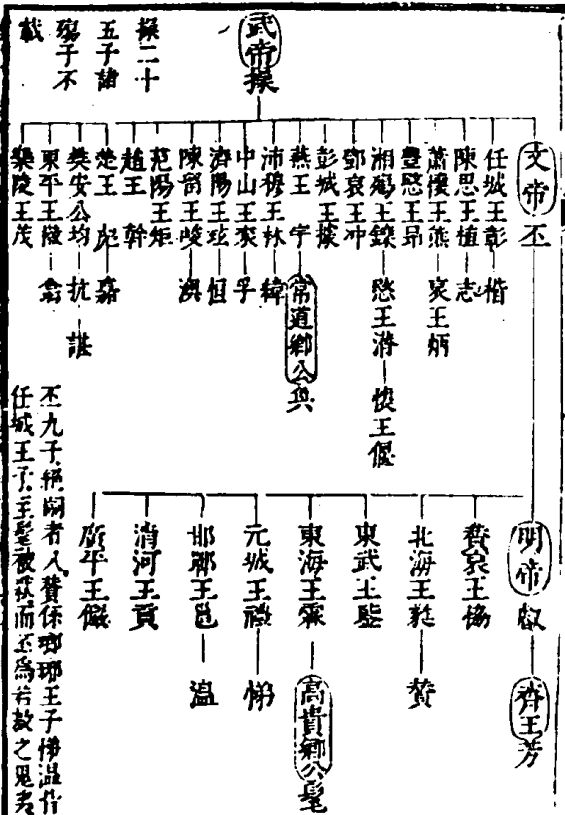 武帝操
操二十
五子諸
殤子不
載
文帝丕
任城王彰 楷
陳思王植 志
蕭懷王熊 哀王炳
豐愍王昂
湘殤王鑠 愍王潛 懷王偃
鄧哀王冲
彭城王據
燕王宇 常道鄉公奐
沛穆王林 緯
中山王袞 孚
濟陽王玹 恒
陳留王峻 澳
范陽王矩
趙王幹
楚王彪 嘉
樊安公均 抗 諶
東平王徽 翕
樂陵王茂
明帝叡 齊王芳
贊哀王協
北海王蕤 贊
東武王鑒
東海王霖 高貴鄉公髦
元城王禮 悌
邯鄲王邕 温
清河王貢
廣平王儼
丕九子絕嗣者八贊係瑯琊王子悌温皆
任城王子王髦被弒而丕爲若敖之鬼矣